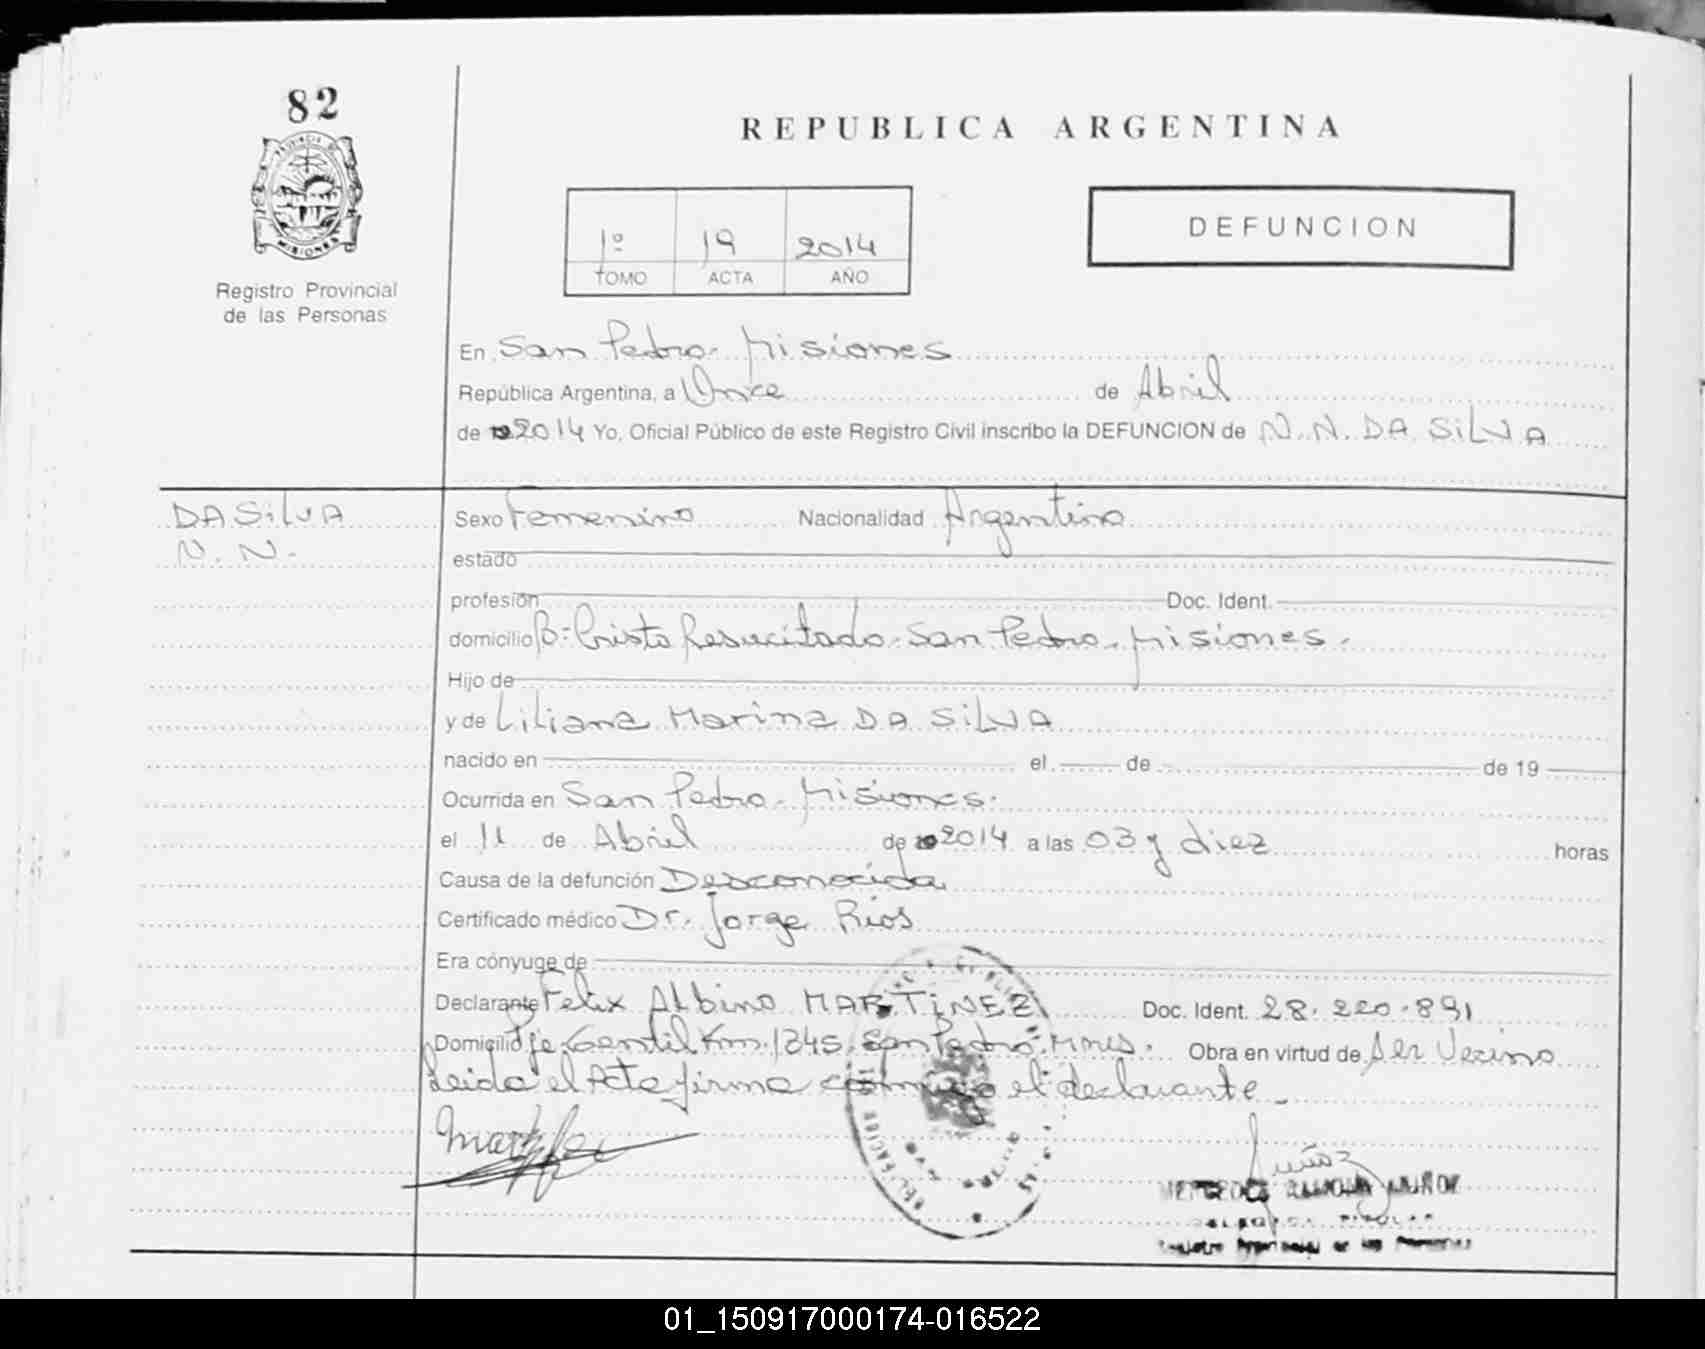 82
REPUBLICA ARGENTINA
PROVINCIA DE
MISIONES
Registro Provincial
de las Personas
1º 19 2014
TOMO ACTA AÑO
DEFUNCION
En San Pedro - Misiones
República Argentina, a Once de Abril
de 2014 Yo, Oficial Público de este Registro Civil inscribo la DEFUNCION de N.N. DA SILVA
DA SILVA
N. N.
Sexo Femenino Nacionalidad Argentina
estado
profesión Doc. Ident.
domicilio Bº Cristo Resucitado - San Pedro - Misiones.
Hijo de
y de Liliana Marina DA SILVA
nacido en el de de 19
Ocurrida en San Pedro - Misiones.
el 11 de Abril de 2014 a las 03 y diez horas
Causa de la defunción Desconocida
Certificado médico Dr. Jorge Rios
Era cónyuge de
Declarante Felix Albino MARTINEZ Doc. Ident. 28.220.891
Domicilio Pje. Gentil Km. 1345. San Pedro. Mnes. Obra en virtud de Ser Vecino
Leida el Acta firma conmigo el declarante -
MERCEDES RAMONA MUÑOZ
Registro Provincial de las Personas
01_150917000174-016522